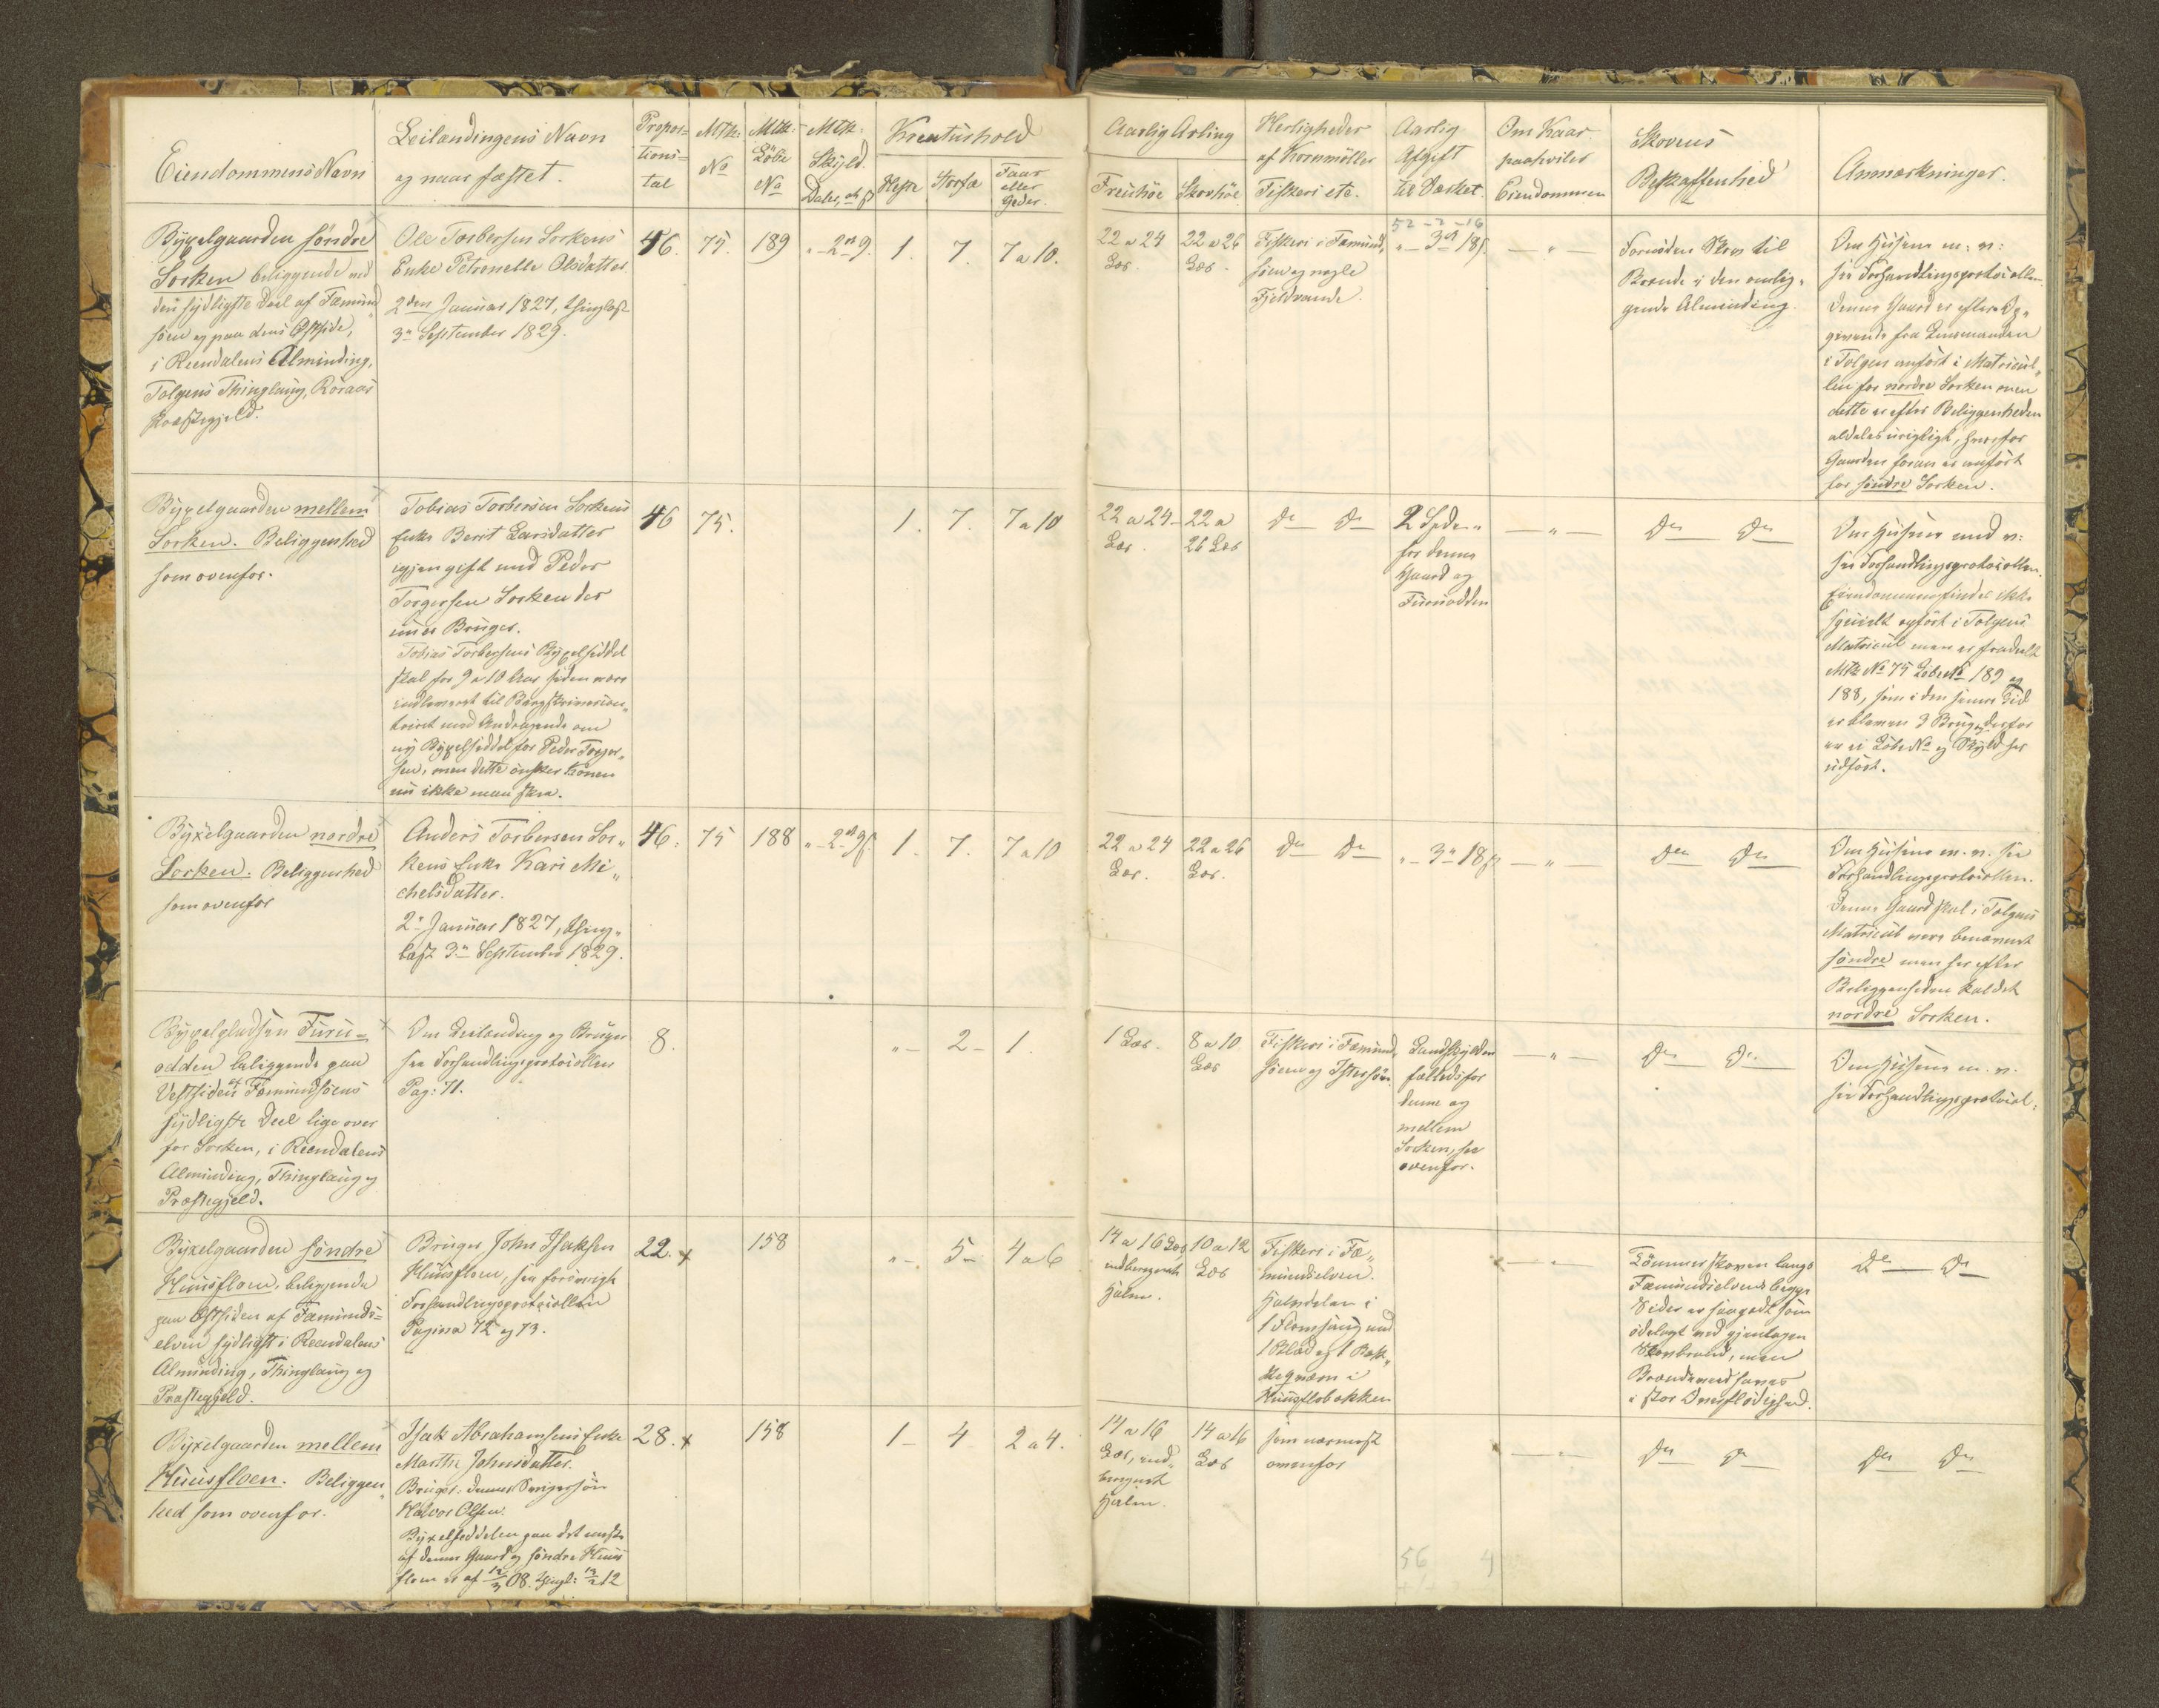 Eiendommens Navn
Leilændingens Navn
og naar fæstet.
Propor-
tions-
tal
Mtk:
No
Mtk:
Löbe
No
Mtk:
Skyld.
Daler, ort ß
Kreaturhold
Heste
Storfæ
Faar
eller
Geder.
Aarlig Avling
Freuhöe
Skovhöe
Herligheder
af Kornmöller
Fiskeri etc.
Aarlig
Afgift
til Værket.
Om Kaar
paahviler
Eiendommen
Skovens
Beskaffenhed
Anmærkninger.
Byxelgaarden söndre
Sorken beliggende ved
den sydligste Deel af Fæmund-
söen og paa dens Östside,
i Reendalens Alminding,
Tolgens Thinglaug, Röraas
Præstegjeld.
Ole Torbersen Sorkens
Enke Petronelle Olsdatter
2den Januar 1827, thinglæst
3die September 1829.
46.
75.
189
" - 2 ort 9.
1.
7.
7 a 10.
22 a 24
Læs.
22 a 26
Læs.
Fiskeri i Fæmund-
söen og nogle
Fjeldvande.
52 - 2 - 16
" - 3 ort 18 ß.
— " —
Fornöden Skov til
Brænde i den omlig-
gende Alminding.
Om Husene m: v:
see Forhandlingsprotocollen
Denne Gaard er efter Op-
givende fra Lensmanden
i Tolgen anfört i Matricul-
len for nordre Sorken men
dette er efter Beliggenheden
aldeles urigtigt, hvorfor
Gaarden foran er anfört
for söndre Sorken.
Byxelgaarden mellem
Sorken. Beliggenhed
som ovenfor.
Tobias Torbersen Sorkens
Enke Berit Larsdatter
igjen gift med Peder
Torgersen Sorken der
nu er Bruger.
Tobias Torbersens Byxelseddel
skal for 9 a 10 Aar siden være
indleveret til Bergskriverson-
toiret med Andragende om
ny Byxelseddel for Peder Torger-
sen, men dette önsker Konen
nu ikke maa skee.
46
75.
1.
7.
7 a 10
22 a 24
Læs.
22 a
26 Læs
Do Do
2 Spd
for denne
Gaard og
Furuodden
— " —
Do Do
Om Husene med v:
see Forhandlingsprotocollen.
Eiendommen findes ikke
specielt opfört i Tolgens
Matricul men er fradeelt
Mtk No 75 Löbe No 189 og
188, som i den senere Tid
er bleven 3 Brug, derfor
er ei Löbe No og Skyld her
udfört.
Byxelgaarden nordre
Sorken. Beliggenhed
som ovenfor
Anders Torbersen Sor-
kens Enke Kari Mi-
chelsdatter.
2den Januar 1827, thing-
læst 3die September 1829.
46.
75
188
" - 2 ort 9 ß.
1.
7.
7 a 10
22 a 24
Læs.
22 a 26
Læs.
Do Do
" - 3 ort 18 ß
— " —
Do Do
Om Husene m. v. see
Forhandlingsprotocollen.
Denne Gaard skal i Tolgens
Matricul være benævnt
söndre men her efter
Beliggenheden kaldet
nordre Sorken.
Byxelpladsen Furu-
odden beliggende paa
Vestsiden af Fæmundsöens
sydligste Deel lige over
for Sorken, i Reendalens
Alminding, Thinglaug og
Præstegjeld.
Om Leilænding og Bruger
see Forhandlingsprotocollen
Pag: 71.
8.
" -
2 -
1.
1 Læs.
8 a 10
Læs
Fiskeri i Fæmund-
söen og Istersöen.
Landskylden
fælleds for
denne og
mellem
Sorken, see
ovenfor.
— " —
Do Do
Om Husene m. v.
see Forhandlingsprotocol:
Byxelgaarden söndre
Huusfloen, beliggende
paa Östsiden af Fæmunds-
elven sydligst i Reendalens
Alminding, Thinglaug og
Præstegjeld.
Bruger John Isaksen
Huusfloen, see forövrigt
Forhandlingsprotocollen
Pagina 72 og 73.
22. x
158
" -
5 -
4 a 6
14 a 16 Læs,
indberegnet
Halm.
10 a 12
Læs
Fiskeri i Fæ-
mundselven.
Halvdelen i
1 Flomsaug med
1 Blad og 1 Bæk-
keqværn i
Huusflobækken
— " —
Tömmerskoven langs
Fæmundselvens begge
Sider er saagodt som
ödelagt ved gjentagen
Skovbrand, men
Brændeved haves
i stor Overflödighed.
Do Do
Byxelgaarden mellem
Huusfloen. Beliggen-
hed som ovenfor.
Isak Abrahamsens Enke
Marthe Johnsdatter.
Bruger: dennes Svigersön
Halvor Olsen.
Byxelseddelen paa det meste
af denne Gaard og söndre Huus
floen er af 12/3 08. thingl: 13/2 12
28. x
158
1 -
4
2 a 4.
14 a 16
Læs, ind-
beregnet
Halm.
14 a 16
Læs
som nærmest
ovenfor
— " —
Do Do
Do Do
56